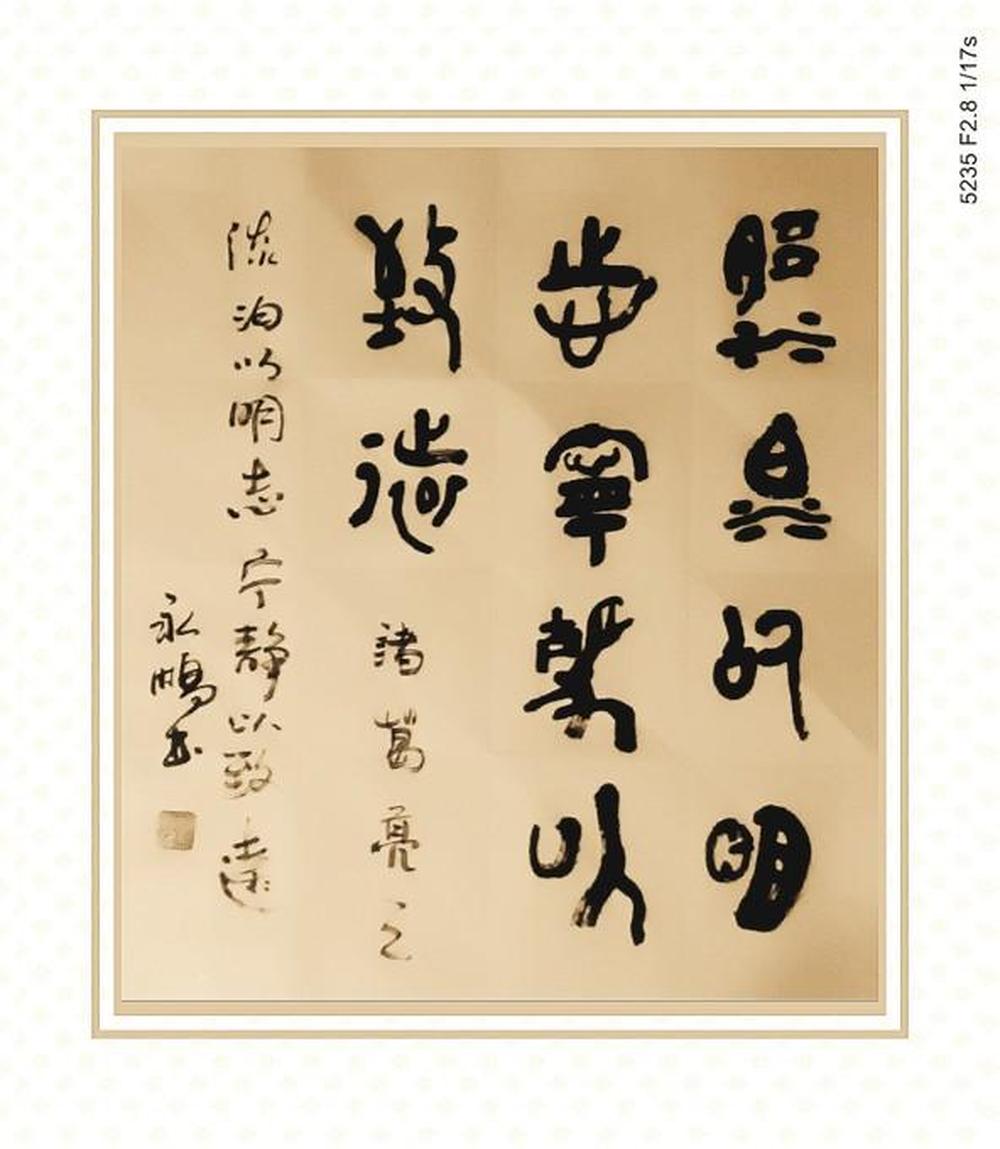 5235 F2.8 1/17s
以明
志寧靜以
致遠 諸葛亮之
淡泊以明志宁静以致遠
永鵬书